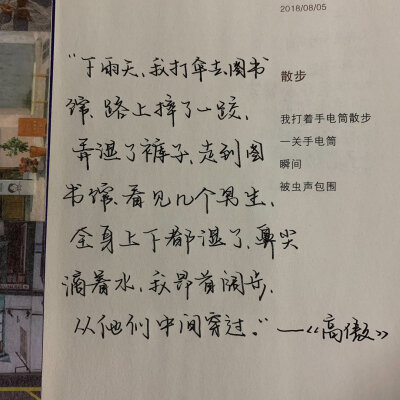 2018/08/05
散步
我打着手电筒散步
一关手电筒
瞬间
被虫声包围
“下雨天，我打伞去图书
馆，路上摔了一跤，
弄湿了裤子，走到图
书馆，看见几个男生，
全身上下都湿了，鼻尖
滴着水，我昂首阔步，
从他们中间穿过。”——《高傲》